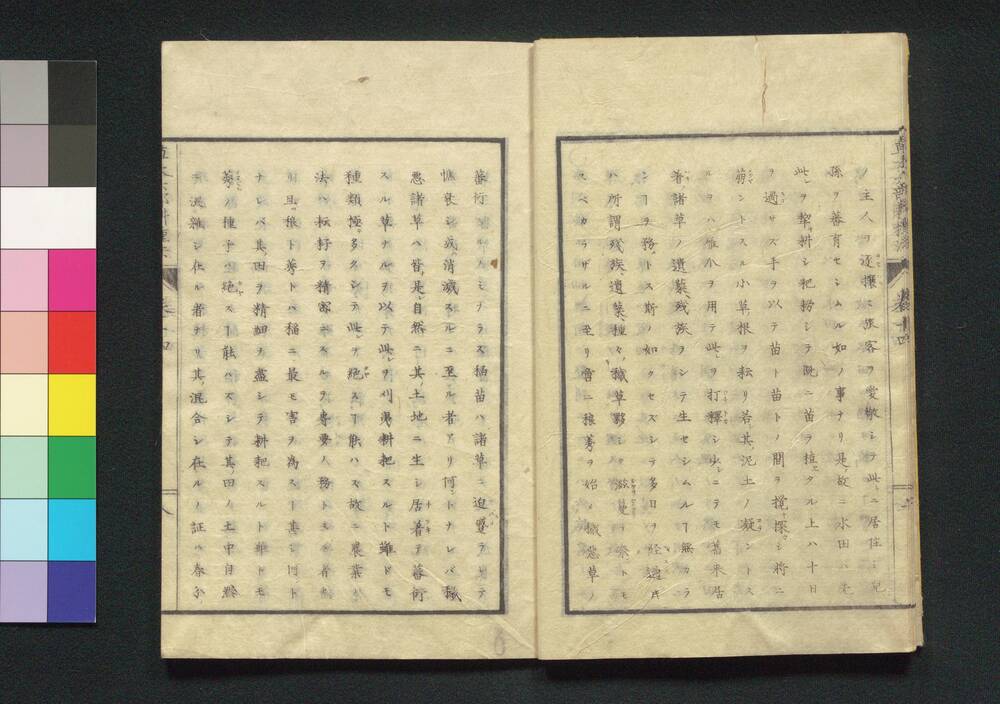 ノ主人ヲ逐攘シ旅客ヲ愛敬シテ此ニ居住シ児
孫ヲ蕃育セシムル如ノ事ナリ是故ニ水田ハ
此ヲ犂耕シ耙耮シテ既ニ苗ヲ植タル上ハ十日
ヲ過サズ手ヲ以テ苗ト苗トノ間ヲ攪探シ將ニ
萠ントスル小草根ヲ耘リ若其泥土ノ凝ントス
ルヲハ雁爪ヲ用テ此ヲ打擇シ少シニテモ舊来居
着諸草ノ遺蘖残族ヲシテ生セシムルヿ無カラ
ンヿヲ務トス斯ノ如クセズシテ多日ヲ経過
ハ所謂残族遺蘖種々ノ穢草夥シク滋蔓ヲ
ベカラザルニ至リ曾ニ稂莠ヲ始メ穢惡草ノ
蕃衍スルノミナラズ稲苗ハ諸草ニ迫蹙ラレテ
憔衰シ或ハ消滅スルニ至ル者アリ何ントナレバ穢
悪諸草ハ皆是自然ニ其土地ニ生シ居着テ蕃衍
スル草ナルヲ以テ此ヲ刈夷耕耙スルト雖ドモ
種類極多クシテ此ヲ絶スヿ能ハズ故ニ農業ノ
法ハ耘耔ヲ精密ニスルヲ専要ノ務トスル者ナ
リ且稂ト莠トハ稲ニ最モ害ヲ為ス ト
ナレバ其田ヲ精細ヲ盡シテ耕耙スルト雖ドモ
莠ノ種子ハ絶スヿ能ハズシテ其田ノ土中自然
ニ混雑シ在ル者ナリ其混合シ在ルノ証ハ春分
巻十四